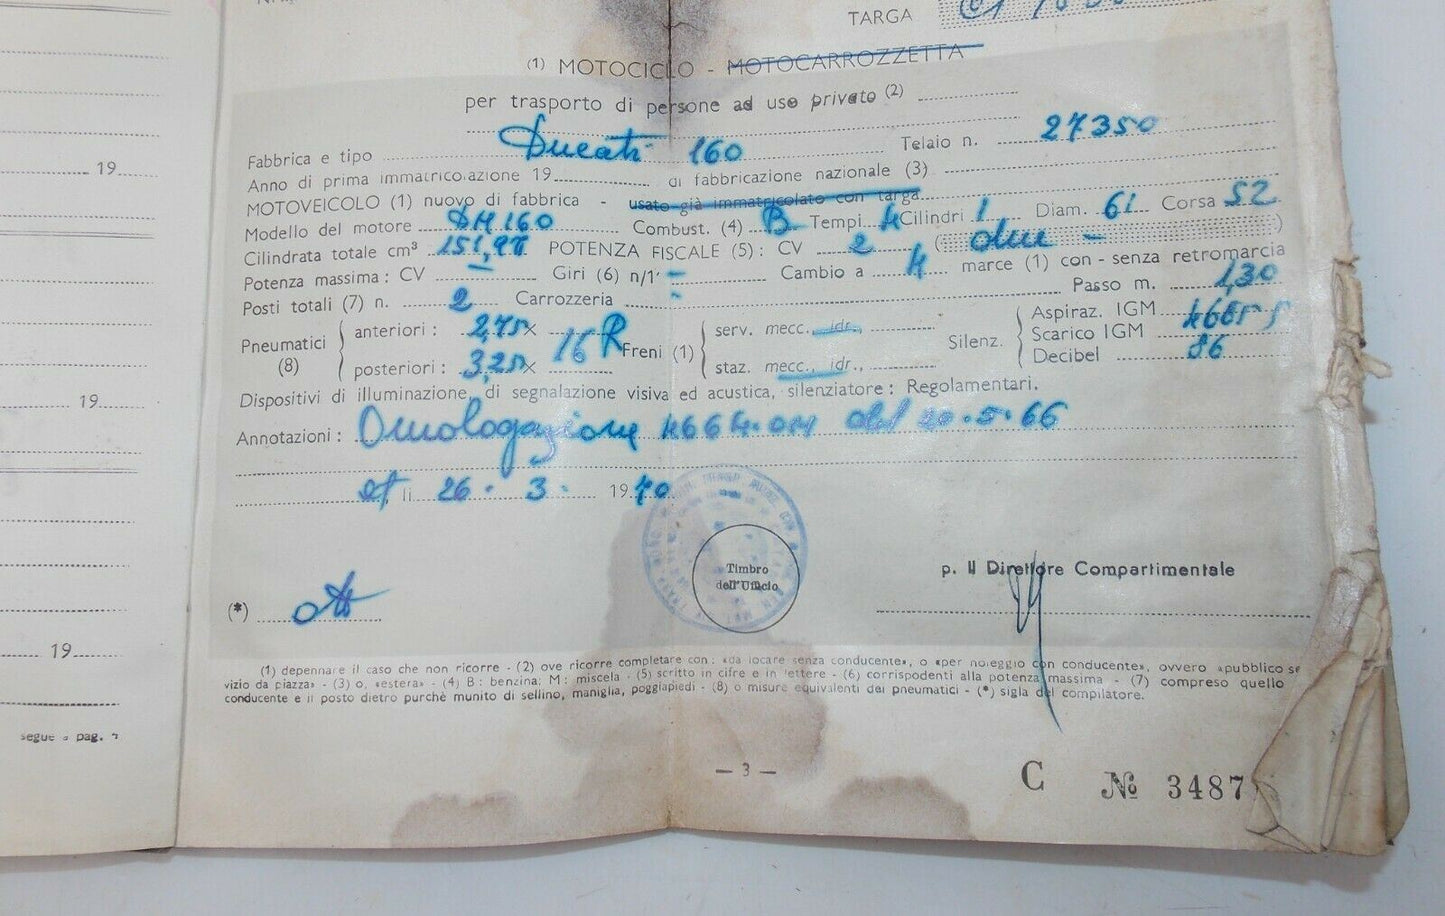 TARGA
(1) MOTOCICLO - MOTOCARROZZETTA
per trasporto di persone ad uso privato (2)
Fabbrica e tipo Ducati 160 Telaio n. 27350
Anno di prima immatricolazione 19 di fabbricazione nazionale (3)
MOTOVEICOLO (1) nuovo di fabbrica - usato già immatricolato con targa
Modello del motore DM160 Combust. (4) B Tempi 4 Cilindri 1 Diam. 61 Corsa 52
Cilindrata totale cm³ 151,98 POTENZA FISCALE (5): CV 2 (due -)
Potenza massima: CV - Giri (6) n/1' - Cambio a 4 marce (1) con - senza retromarcia
Posti totali (7) n. 2 Carrozzeria - Passo m. 1,30
Pneumatici (8) anteriori: 2,75 x 16 R Freni (1) serv. mecc., idr., Silenz. Aspiraz. IGM
Scarico IGM
posteriori: 3,25 x staz. mecc., idr., Decibel 86
Dispositivi di illuminazione, di segnalazione visiva ed acustica, silenziatore: Regolamentari.
Annotazioni: Omologazione 4664.OM del 20.5.66
li 26. 3. 1970
Timbro
dell'Ufficio
p. Il Direttore Compartimentale
(*)
(1) depennare il caso che non ricorre - (2) ove ricorre completare con: «da locare senza conducente», o «per noleggio con conducente», ovvero «pubblico se
vizio da piazza» - (3) o, «estera» - (4) B: benzina; M: miscela - (5) scritto in cifre e in lettere - (6) corrispondenti alla potenza massima - (7) compreso quello
conducente e il posto dietro purchè munito di sellino, maniglia, poggiapiedi - (8) o misure equivalenti dei pneumatici - (*) sigla del compilatore.
— 3 —
C № 3487
19
19
19
segue a pag.